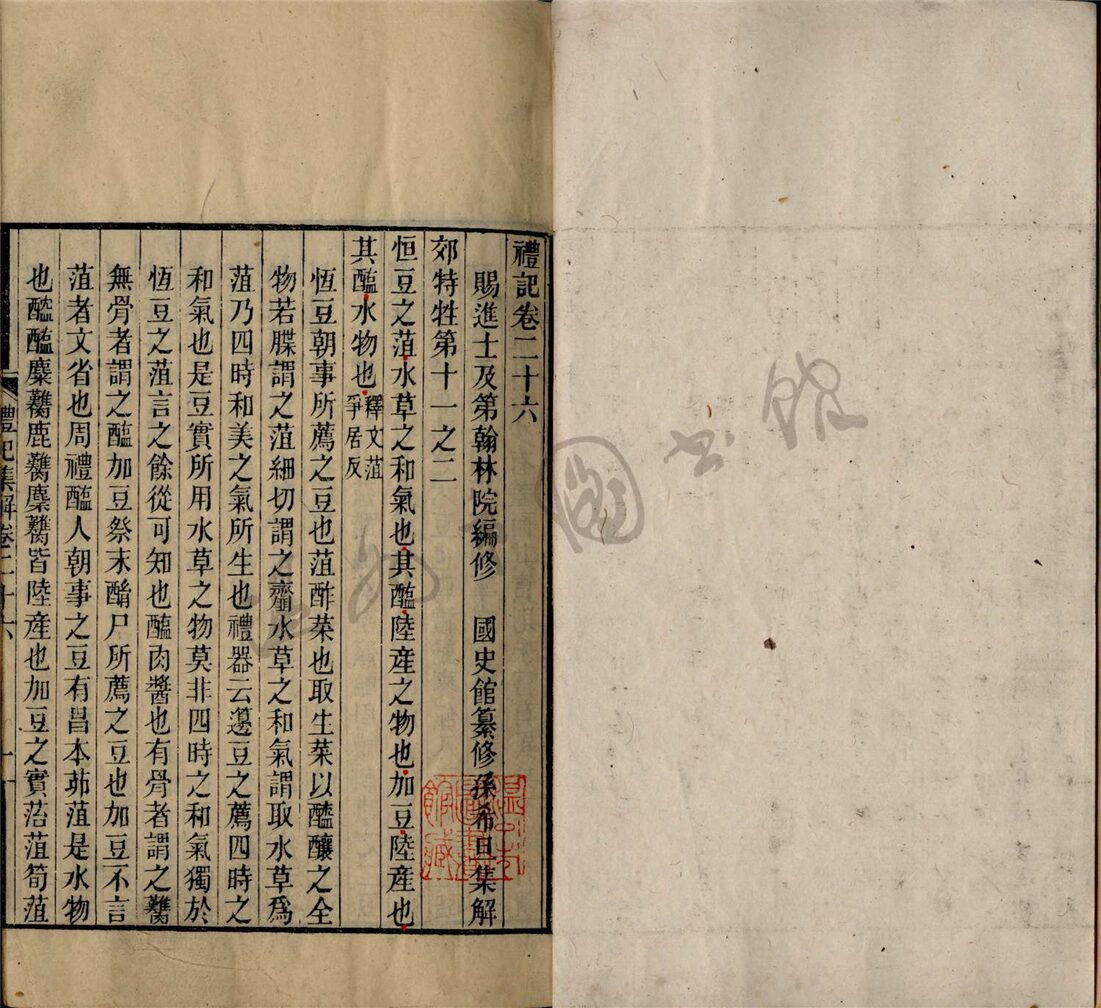 禮記卷二十六
賜進士及第翰林院編修 國史館纂修孫希旦集解
郊特牲第十一之二
恒豆之菹水草之和氣也其醢陸產之物也加豆陸產也
其醢水物也釋文菹爭居反
恆豆朝事所薦之豆也菹酢菜也取生菜以醯釀之全
物若䐑謂之菹細切謂之齏水草之和氣謂取水草爲
菹乃四時和美之氣所生也禮器云籩豆之薦四時之
和氣也是豆實所用水草之物莫非四時之和氣獨於
恆豆之菹言之餘從可知也醢肉醬也有骨者謂之臡
無骨者謂之醢加豆祭末酳尸所薦之豆也加豆不言
菹者文省也周禮醢人朝事之豆有昌本茆菹是水物
也醓醢麋臡鹿臡麇臡皆陸產也加豆之實菭菹筍菹
禮記集解卷二十六
一
圖書館